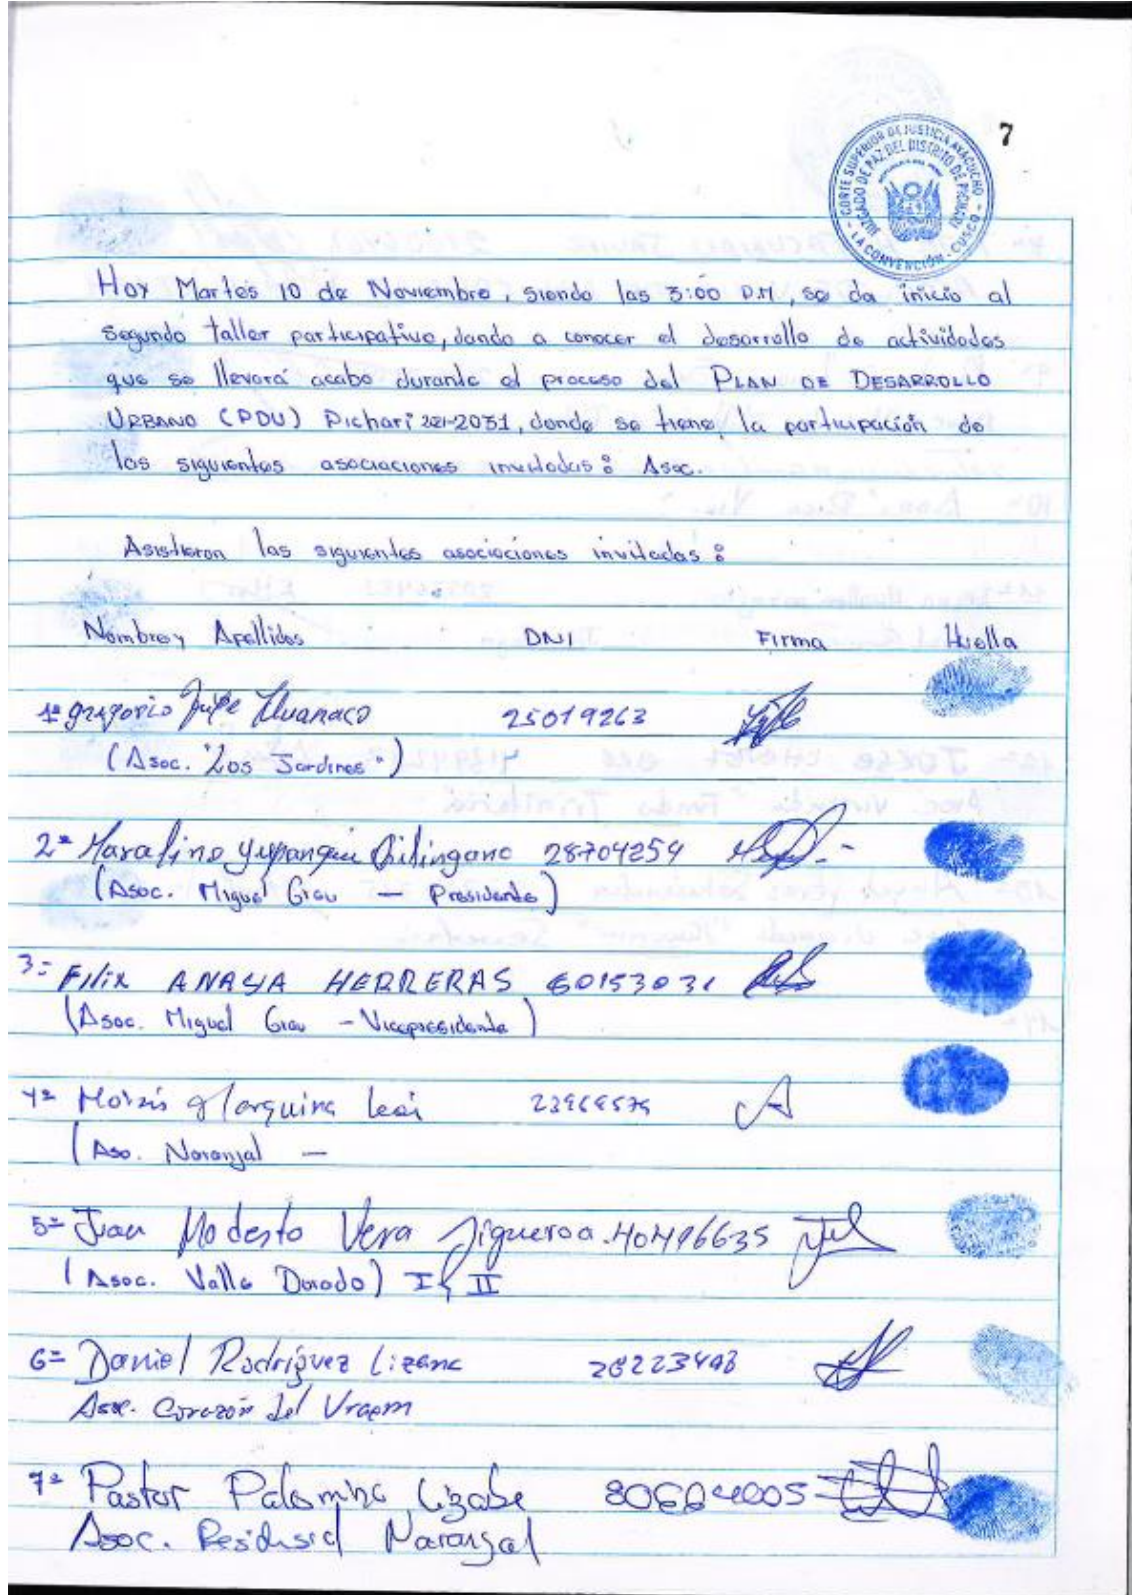 7
CORTE SUPERIOR DE JUSTICIA AYACUCHO
JUZGADO DE PAZ DEL DISTRITO DE PICHARI
LA CONVENCIÓN - CUSCO
Hoy Martes 10 de Noviembre, siendo las 3:00 P.M, se da inicio al
segundo taller participativo, dando a conocer el desarrollo de actividades
que se llevará acabo durante el proceso del PLAN DE DESARROLLO
URBANO (PDU) Pichari 2021-2031, donde se tiene, la participación de
las siguientes asociaciones invitadas: Asoc.
Asistieron las siguientes asociaciones invitadas:
Nombre y Apellidos DNI Firma Huella
1º gregorio Huanaco 25019263
(Asoc. "Los Jardines")
2º yupanqui 28704254
(Asoc. Miguel Grau — Presidente)
3= Filix ANAYA HERRERAS 60153031
(Asoc. Miguel Grau - Vicepresidente)
4º
(Aso. Naranjal —
5= Juan Modesto Vera figueroa. 40496635
(Asoc. Valle Dorado) I y II
6= Daniel Rodríguez Lizana
Asoc. Corazón del Vraem
7º Pastor Palomino
Asoc. Naranjal